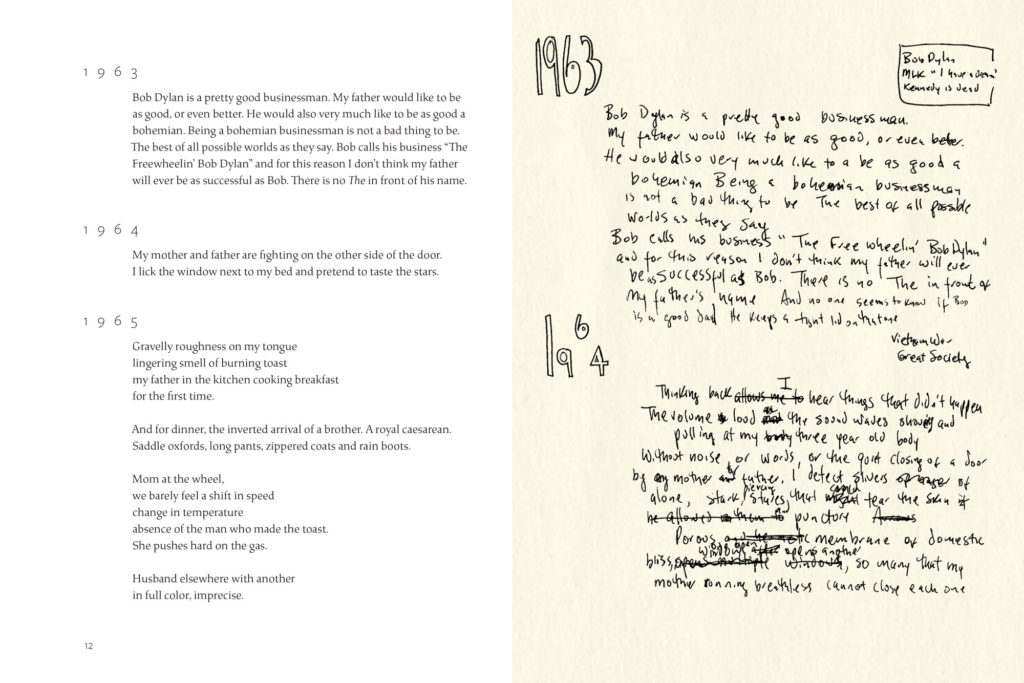 1963
Bob Dylan is a pretty good businessman. My father would like to be
as good, or even better. He would also very much like to be as good a
bohemian. Being a bohemian businessman is not a bad thing to be.
The best of all possible worlds as they say. Bob calls his business “The
Freewheelin’ Bob Dylan” and for this reason I don’t think my father
will ever be as successful as Bob. There is no The in front of his name.
1964
My mother and father are fighting on the other side of the door.
I lick the window next to my bed and pretend to taste the stars.
1965
Gravelly roughness on my tongue
lingering smell of burning toast
my father in the kitchen cooking breakfast
for the first time.
And for dinner, the inverted arrival of a brother. A royal caesarean.
Saddle oxfords, long pants, zippered coats and rain boots.
Mom at the wheel,
we barely feel a shift in speed
change in temperature
absence of the man who made the toast.
She pushes hard on the gas.
Husband elsewhere with another
in full color, imprecise.
12
1963
Bob Dylan
MLK "I have a dream"
Kennedy is dead
Bob Dylan is a pretty good businessman.
My father would like to be as good, or even better.
He would also very much like to a be as good a
bohemian Being a bohemian businessman
is not a bad thing to be The best of all possible
worlds as they say
Bob calls his business "The Free wheelin' Bob Dylan"
and for this reason I don't think my father will ever
be as successful as Bob. There is no The in front of
my father's name And no one seems to know if Bob
is a good dad He keeps a tight lid on that one
1964
Vietnam War
Great Society
Thinking back allows me to I hear things that didn't happen
The volume loud as the sound waves shoving and
pulling at my body three year old body
Without noise or words, or the quiet closing of a door
by my mother and father, I detect slivers of
alone, stark piercing states, that could tear the skin
he allowed them to puncture
Porous membrane of domestic
bliss, windows open another windows, so many that my
mother running breathless cannot close each one